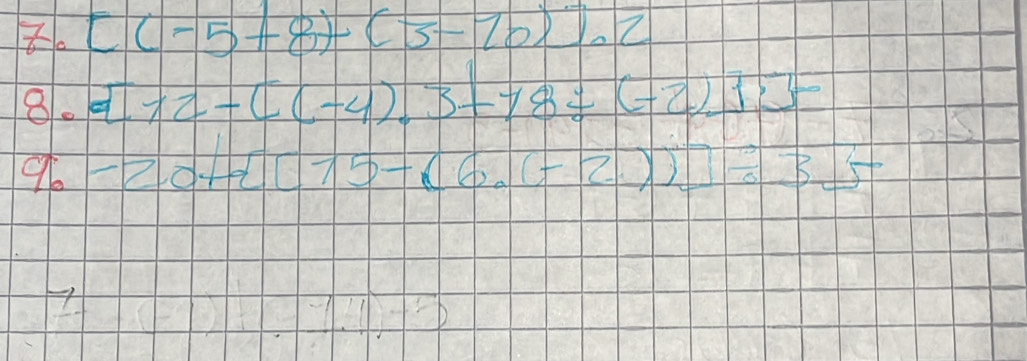 7. [(-5+8)+(3-10)].2
8. {12-[(-4).3+18÷(-2)]}
9. -20+{[15-(6.(-2))]÷3}